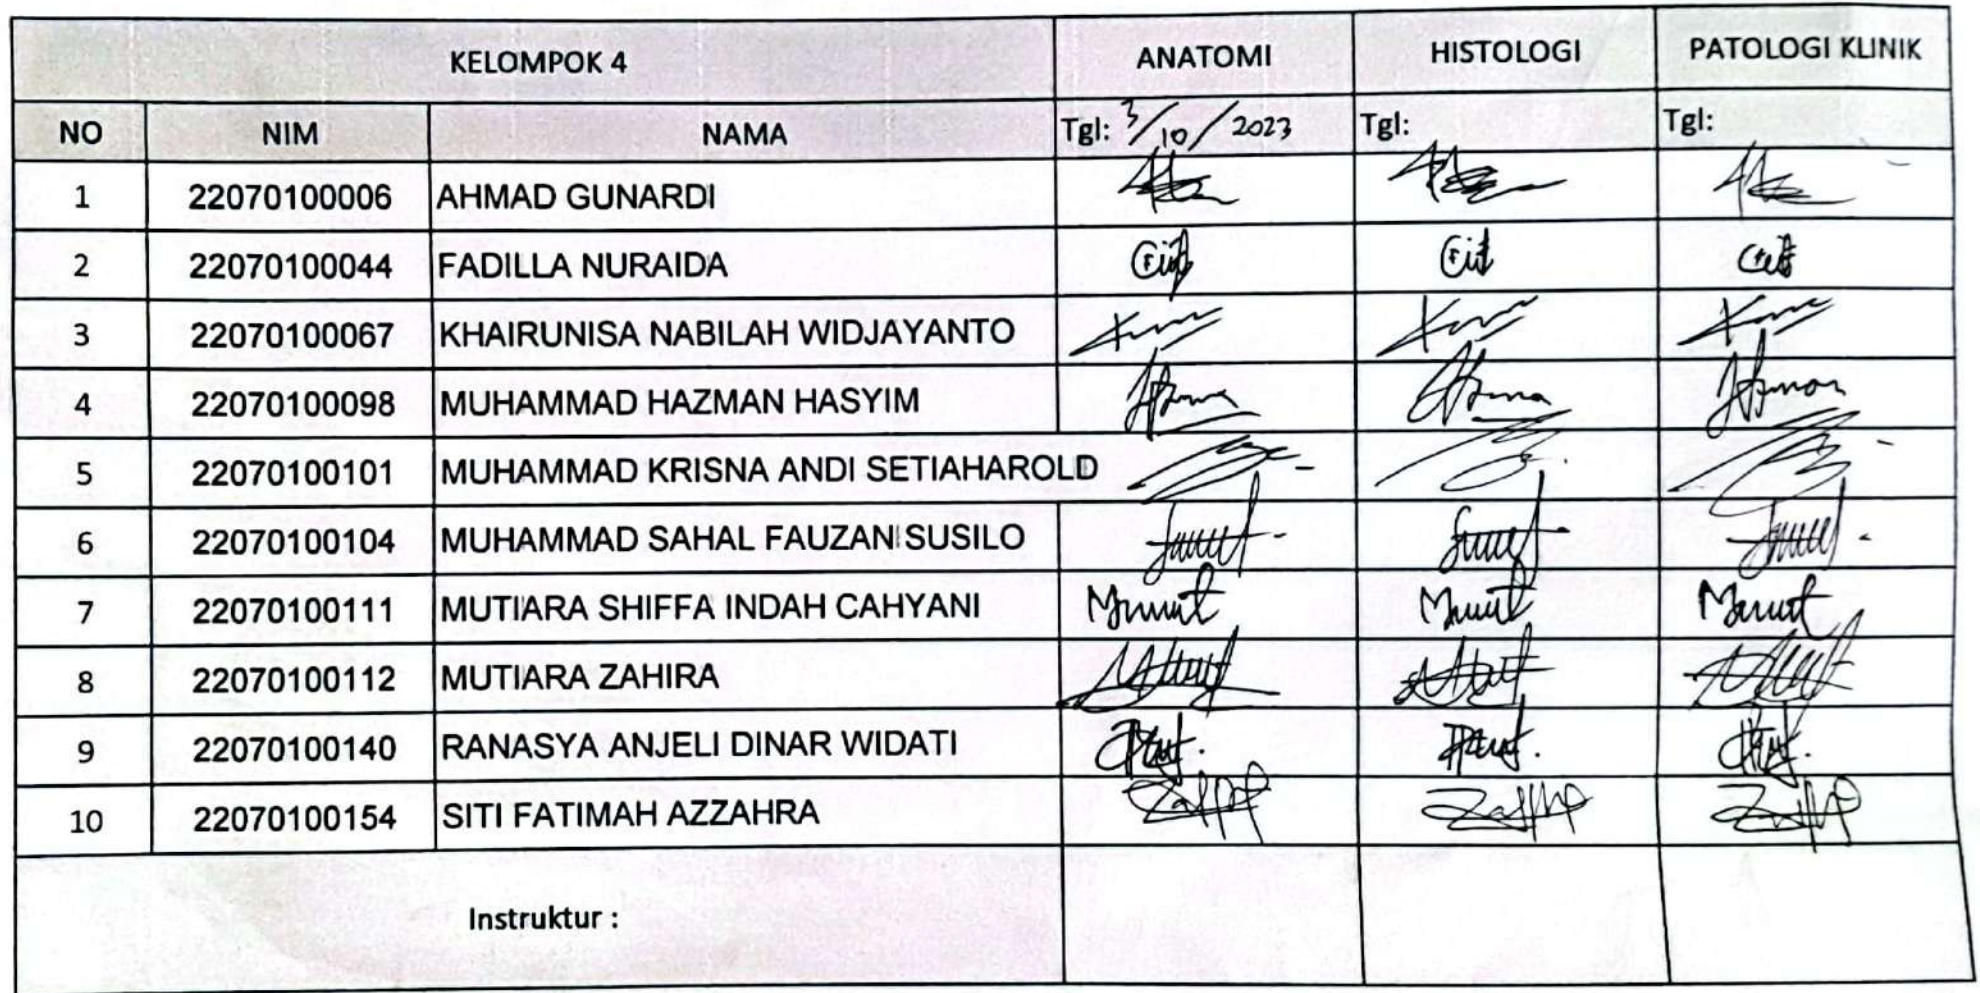 KELOMPOK 4 ANATOMI HISTOLOGI PATOLOGI KLINIK
NO NIM NAMA Tgl: 3/10/2023 Tgl: Tgl:
1 22070100006 AHMAD GUNARDI
2 22070100044 FADILLA NURAIDA
3 22070100067 KHAIRUNISA NABILAH WIDJAYANTO
4 22070100098 MUHAMMAD HAZMAN HASYIM
5 22070100101 MUHAMMAD KRISNA ANDI SETIAHAROLD
6 22070100104 MUHAMMAD SAHAL FAUZAN SUSILO
7 22070100111 MUTIARA SHIFFA INDAH CAHYANI
8 22070100112 MUTIARA ZAHIRA
9 22070100140 RANASYA ANJELI DINAR WIDATI
10 22070100154 SITI FATIMAH AZZAHRA
Instruktur :